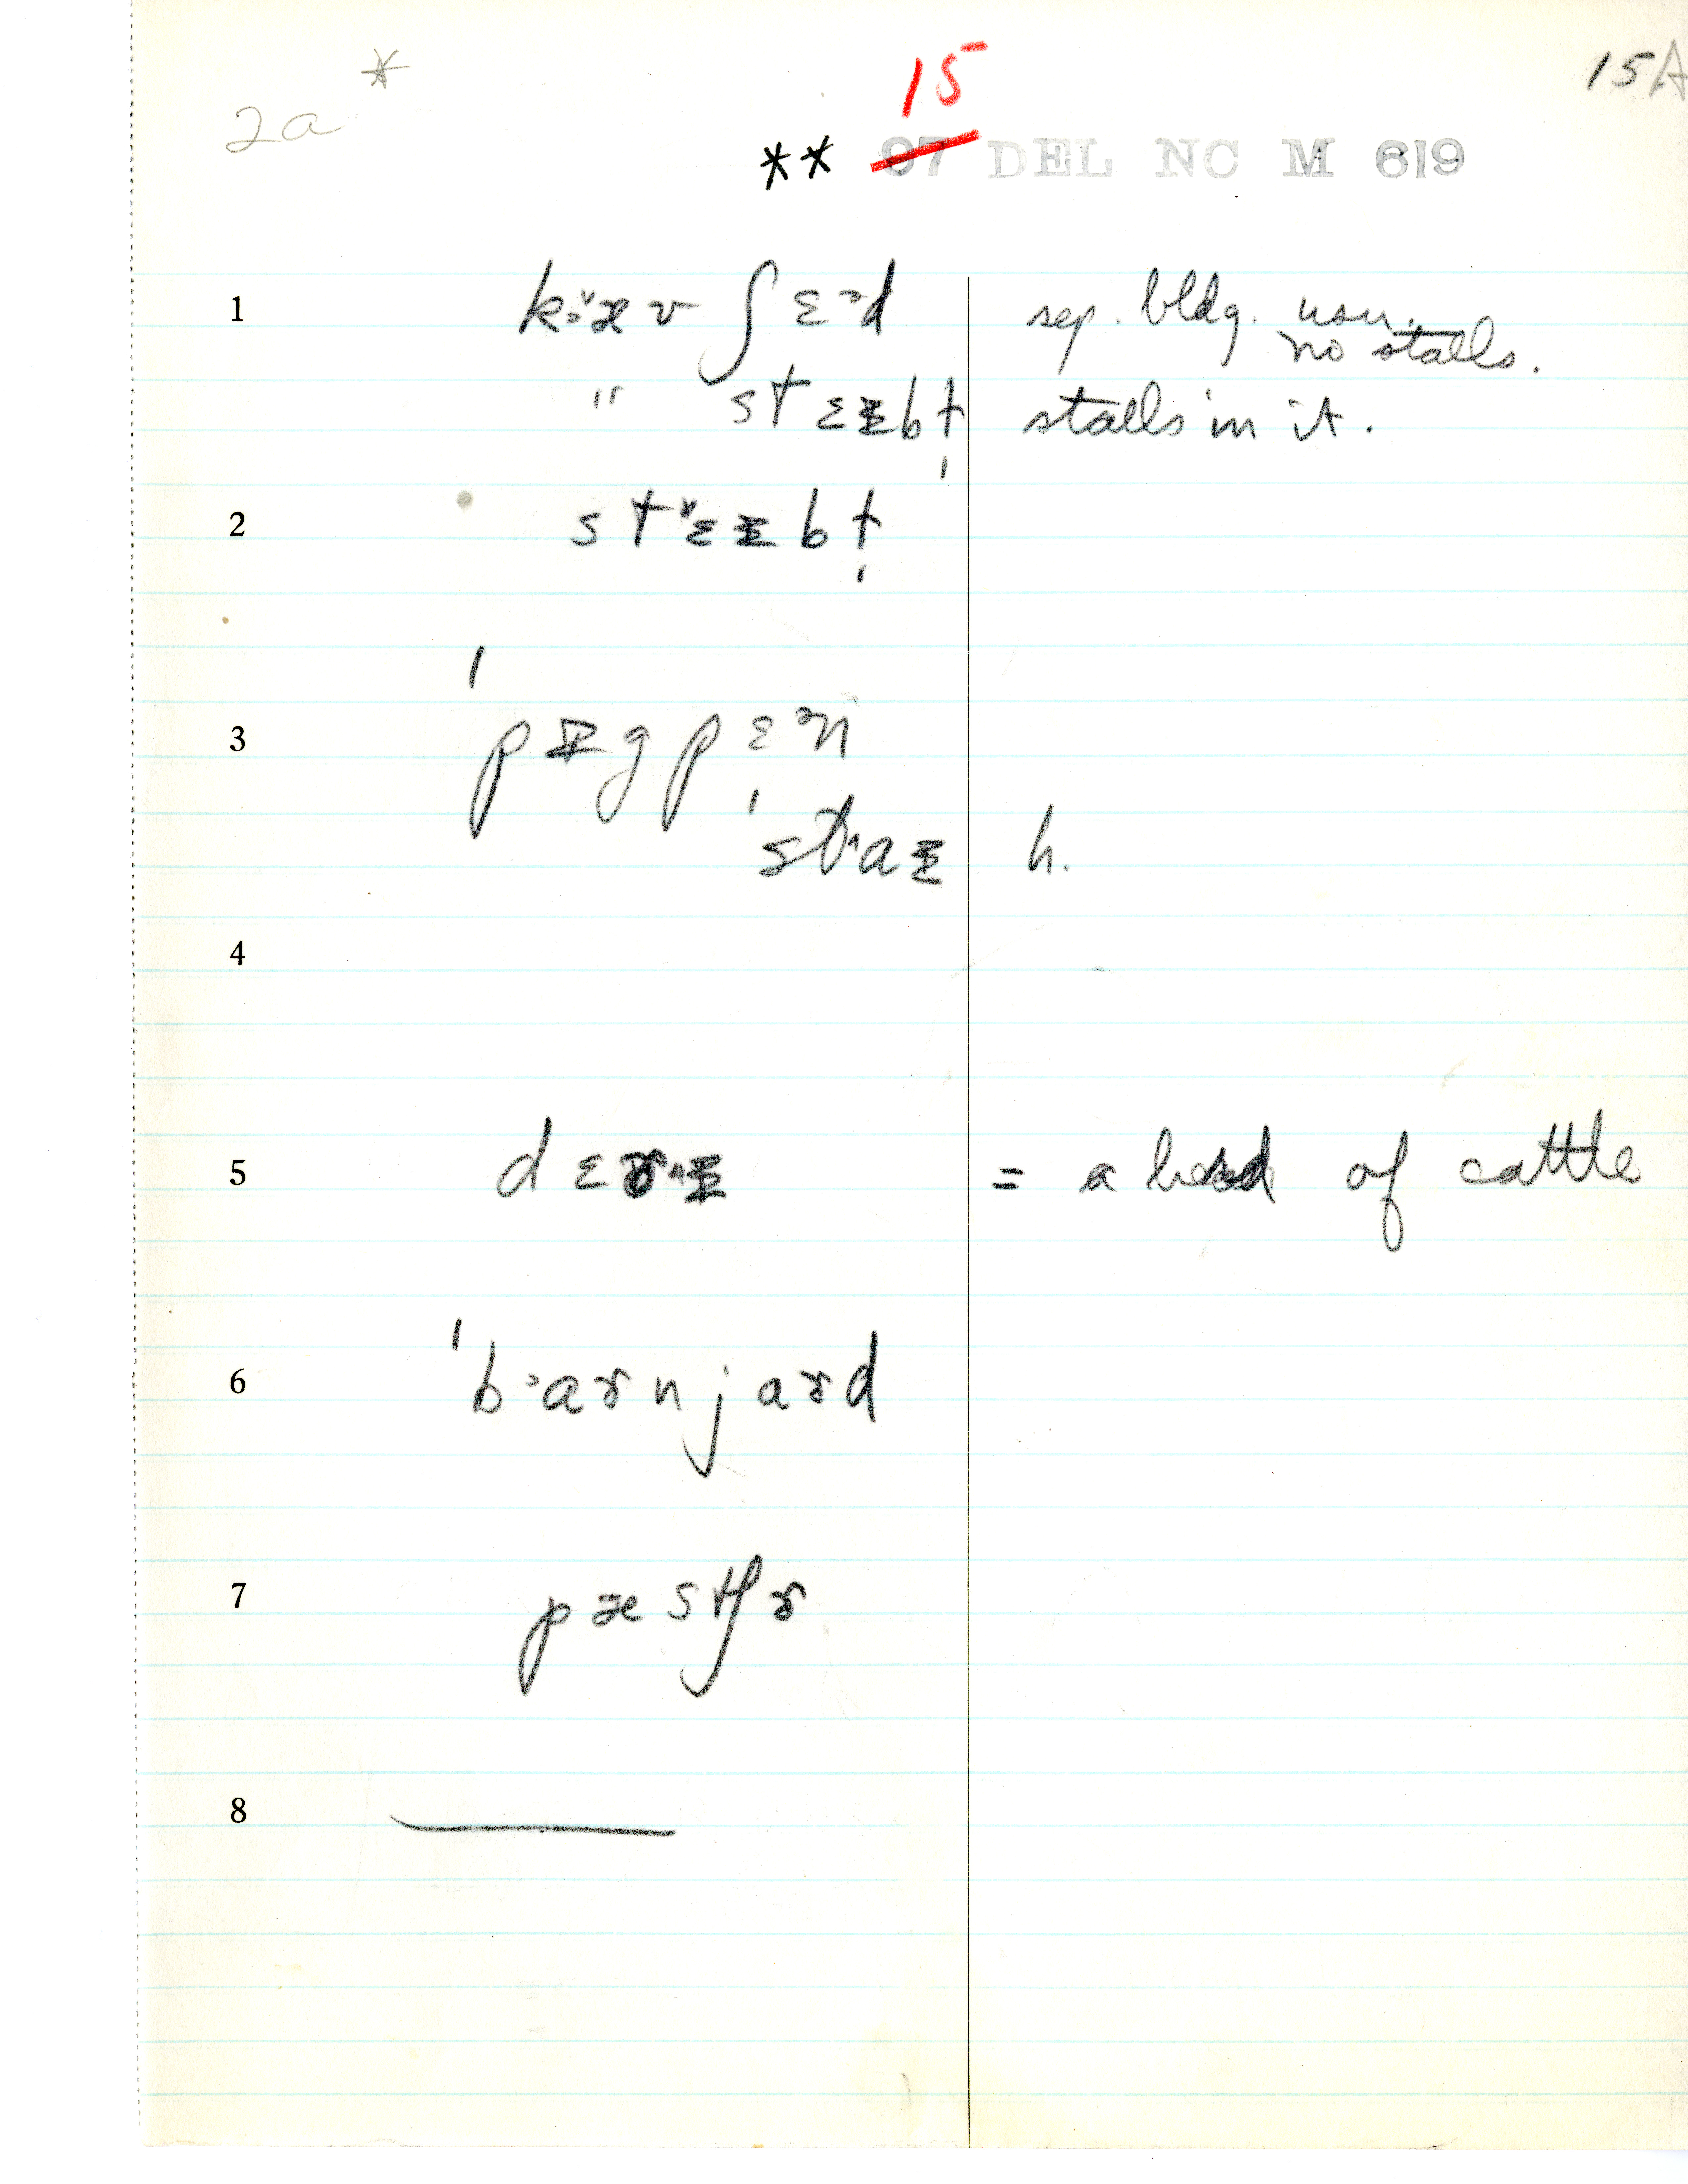 2a *
15
15A
** 07 DEL NC M 619
1 kæʊ ʃɛəd sep. bldg. usu. no stalls.
" stɛɪbɫ̩ stalls in it.
2 stɛɪbɫ̩
3 ˈpɪgpɛən
ˈstaɪ h.
4
5 = a herd of cattle
6 ˈbarnjard
7 pæstʃɚ
8